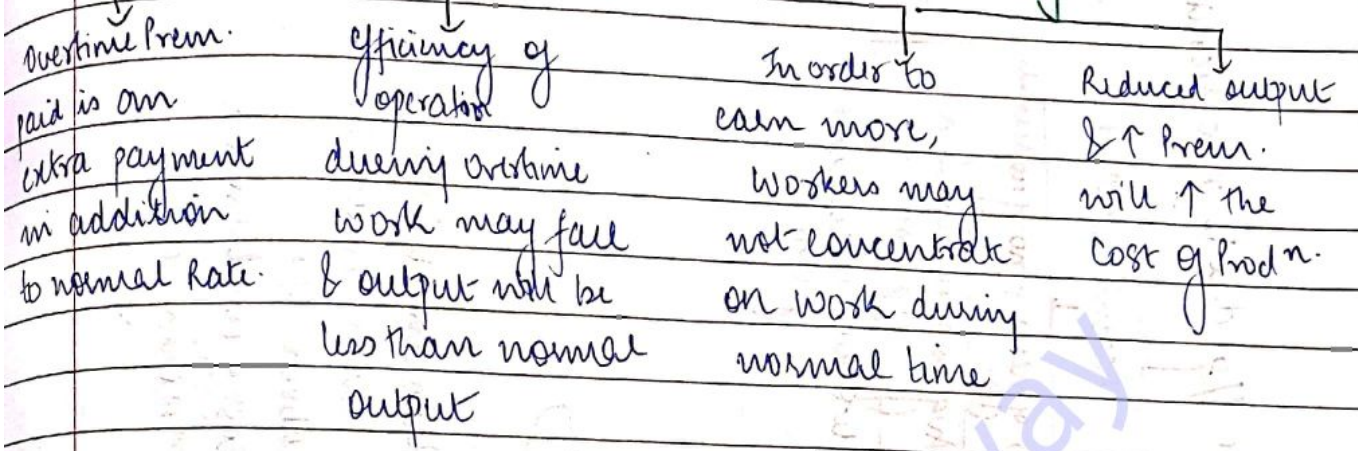 Overtime Prem.
paid is an
extra payment
in addition
to normal Rate.
Efficiency of
operation
during overtime
work may fall
& output will be
less than normal
output
In order to
earn more,
workers may
not concentrate
on work during
normal time
Reduced output
& ↑ Prem.
will ↑ the
Cost of Prodn.
way